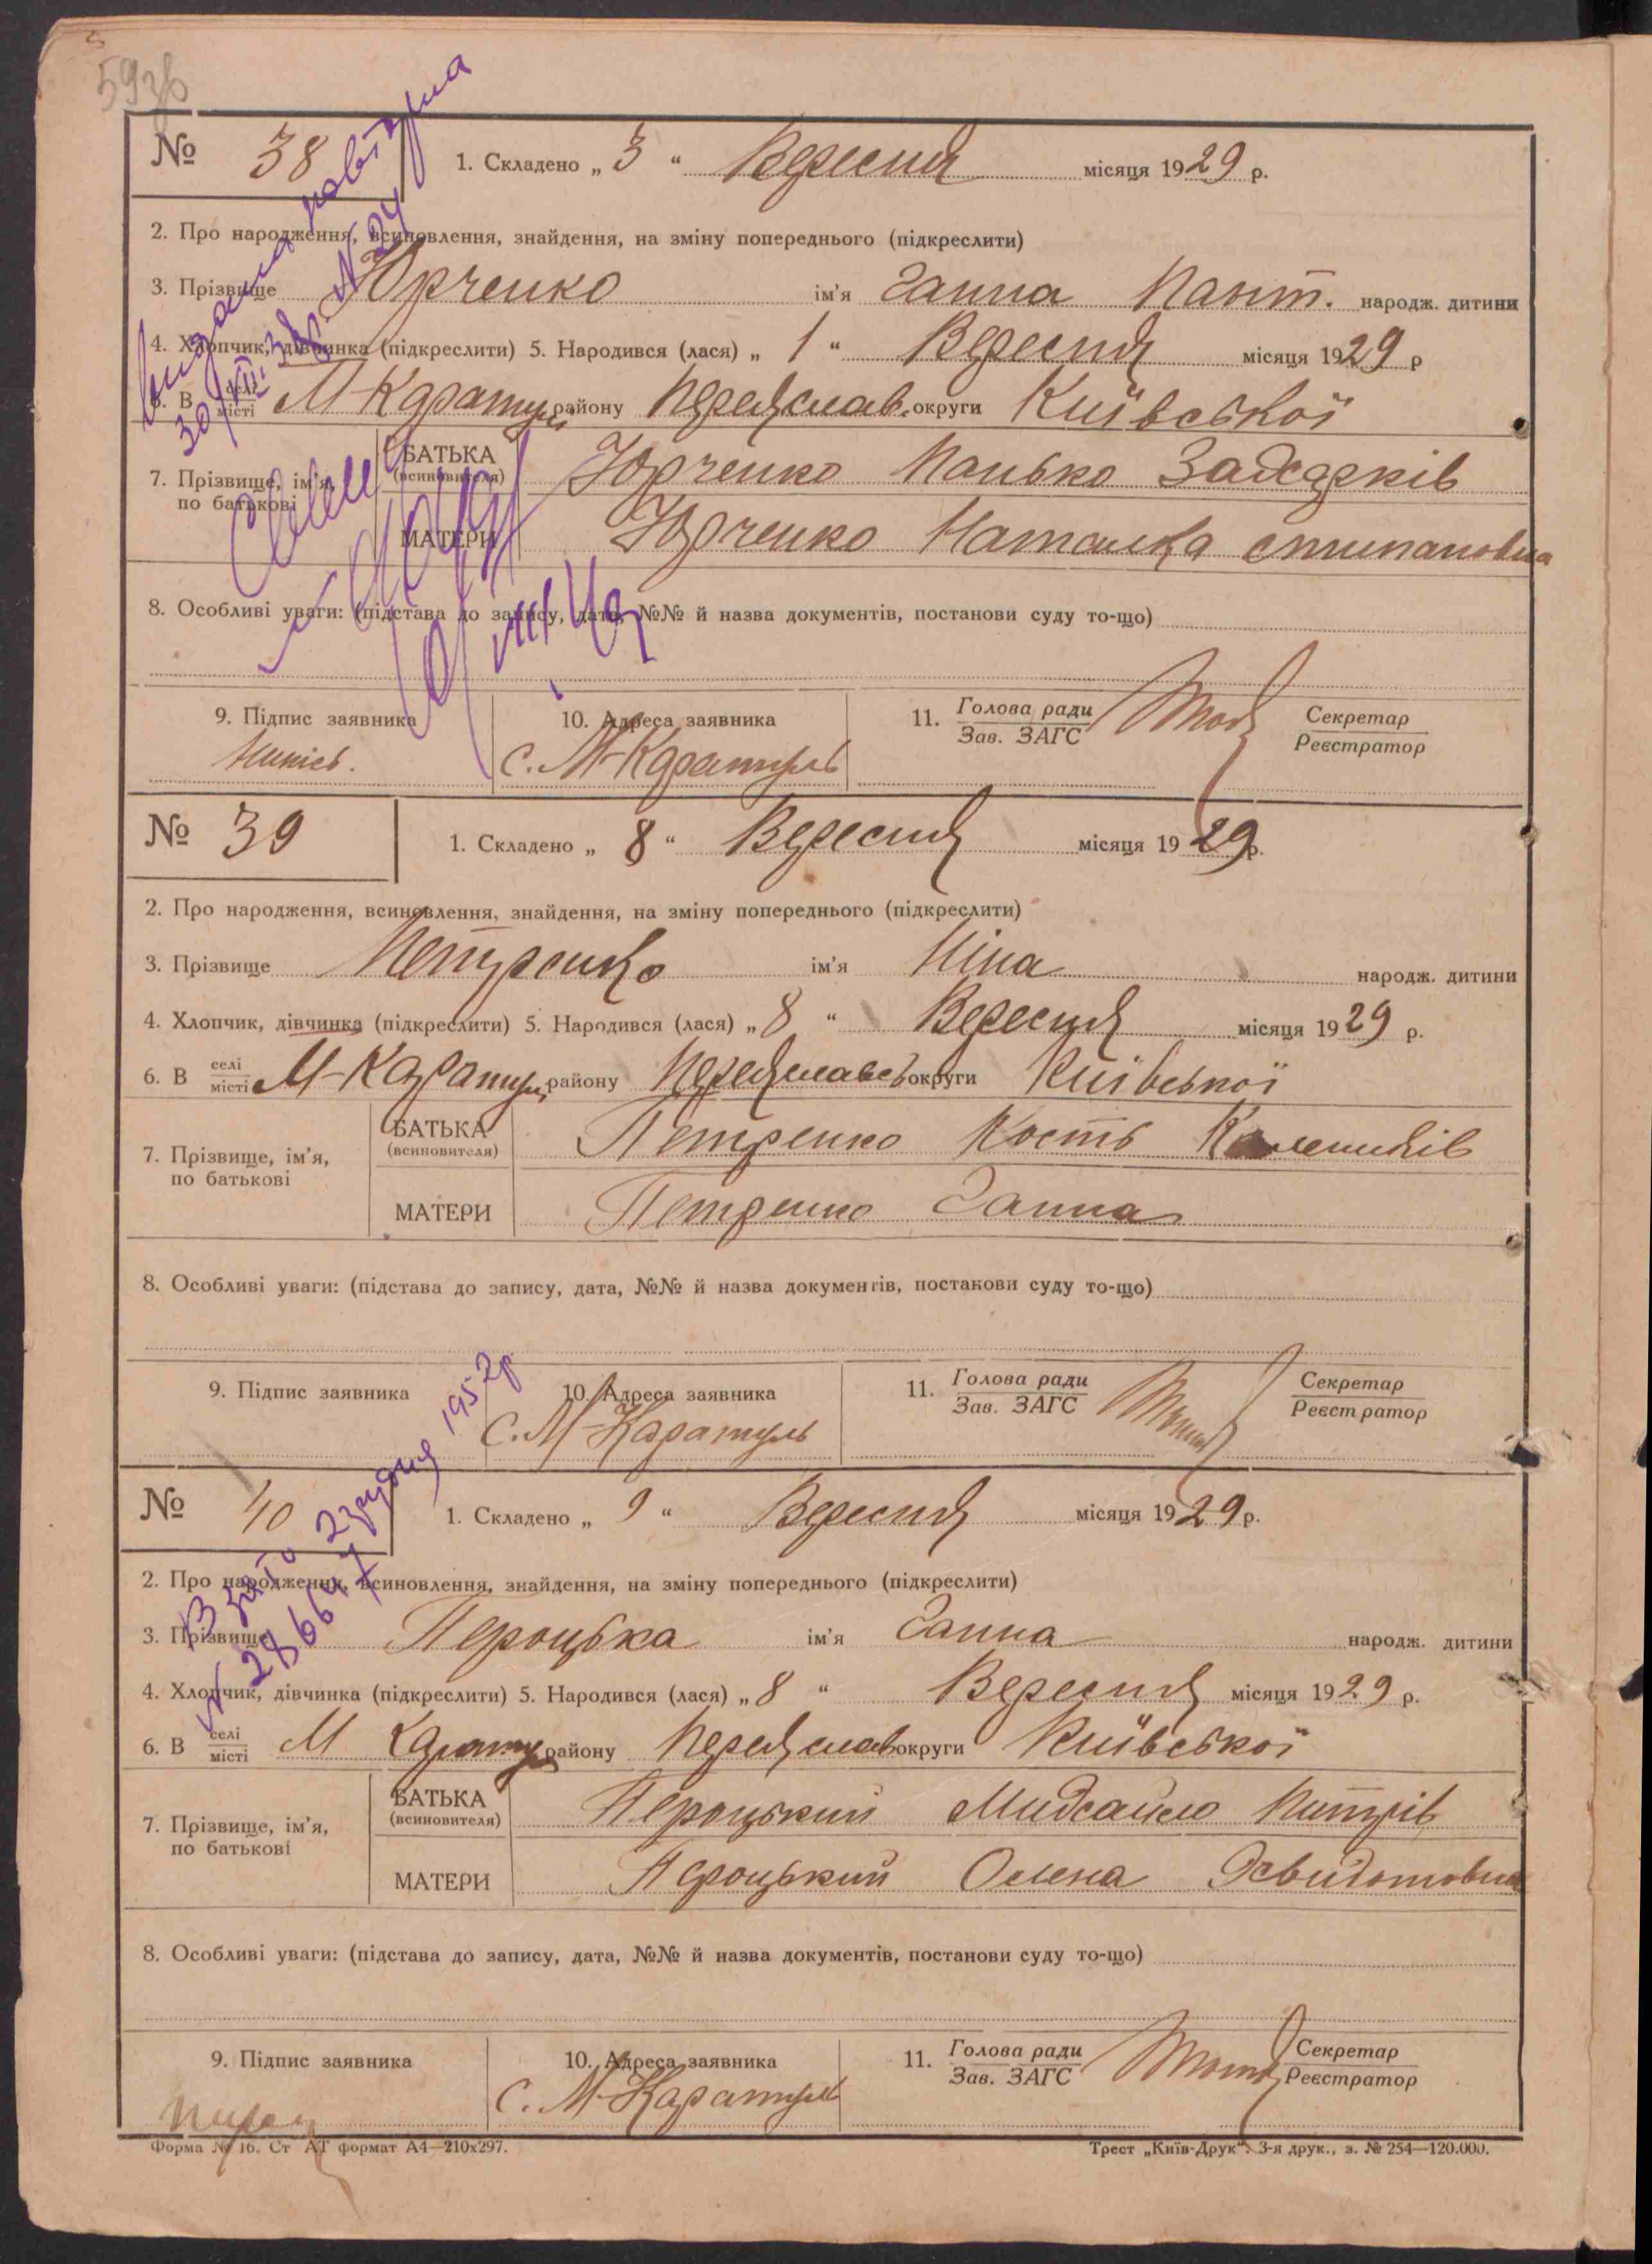 593б
№ 38 1. Складено „ 3 “ Вересня місяця 1929 р.
2. Про народження, всиновлення, знайдення, на зміну попереднього (підкреслити)
3. Прізвище Юрченко ім'я Ганна Пант. народж. дитини
4. Хлопчик, дівчинка (підкреслити) 5. Народився (лася) „ 1 “ Вересня місяця 1929 р
6. В селі місті М-Каратулі району Переяслав. округи Київської
7. Прізвище, ім'я, по батькові
БАТЬКА (всиновителя) Юрченко Панько
МАТЕРИ Юрченко Наталка стипановна
8. Особливі уваги: (підстава до запису, дата, №№ й назва документів, постанови суду то-що)
9. Підпис заявника 10. Адреса заявника 11. Голова ради Зав. ЗАГС Секретар Реєстратор
с. М-Каратуль
№ 39 1. Складено „ 8 “ Вересня місяця 1929 р.
2. Про народження, всиновлення, знайдення, на зміну попереднього (підкреслити)
3. Прізвище Петренко ім'я Ніна народж. дитини
4. Хлопчик, дівчинка (підкреслити) 5. Народився (лася) „ 8 “ Вересня місяця 1929 р.
6. В селі місті М-Каратулі району Переяславсь округи Київської
7. Прізвище, ім'я, по батькові
БАТЬКА (всиновителя) Петренко Кость
МАТЕРИ Петренко Ганна
8. Особливі уваги: (підстава до запису, дата, №№ й назва документів, постанови суду то-що)
9. Підпис заявника 10. Адреса заявника 11. Голова ради Зав. ЗАГС Секретар Реєстратор
с. М-Каратуль
№ 40 1. Складено „ 9 “ Вересня місяця 1929 р.
2 грудня 1952р
2. Про народження, всиновлення, знайдення, на зміну попереднього (підкреслити)
3. Прізвище Пероцька ім'я Ганна народж. дитини
4. Хлопчик, дівчинка (підкреслити) 5. Народився (лася) „ 8 “ Вересня місяця 1929 р.
6. В селі місті М Каратулі району Переяслав округи Київської
7. Прізвище, ім'я, по батькові
БАТЬКА (всиновителя) Пероцький Михайло Питрів
МАТЕРИ Пероцький Олена
8. Особливі уваги: (підстава до запису, дата, №№ й назва документів, постанови суду то-що)
9. Підпис заявника 10. Адреса заявника 11. Голова ради Зав. ЗАГС Секретар Реєстратор
с. М-Каратуль
Форма № 16. Ст АТ формат А4—210х297. Трест „Київ-Друк“. 3-я друк., з. № 254—120.000.